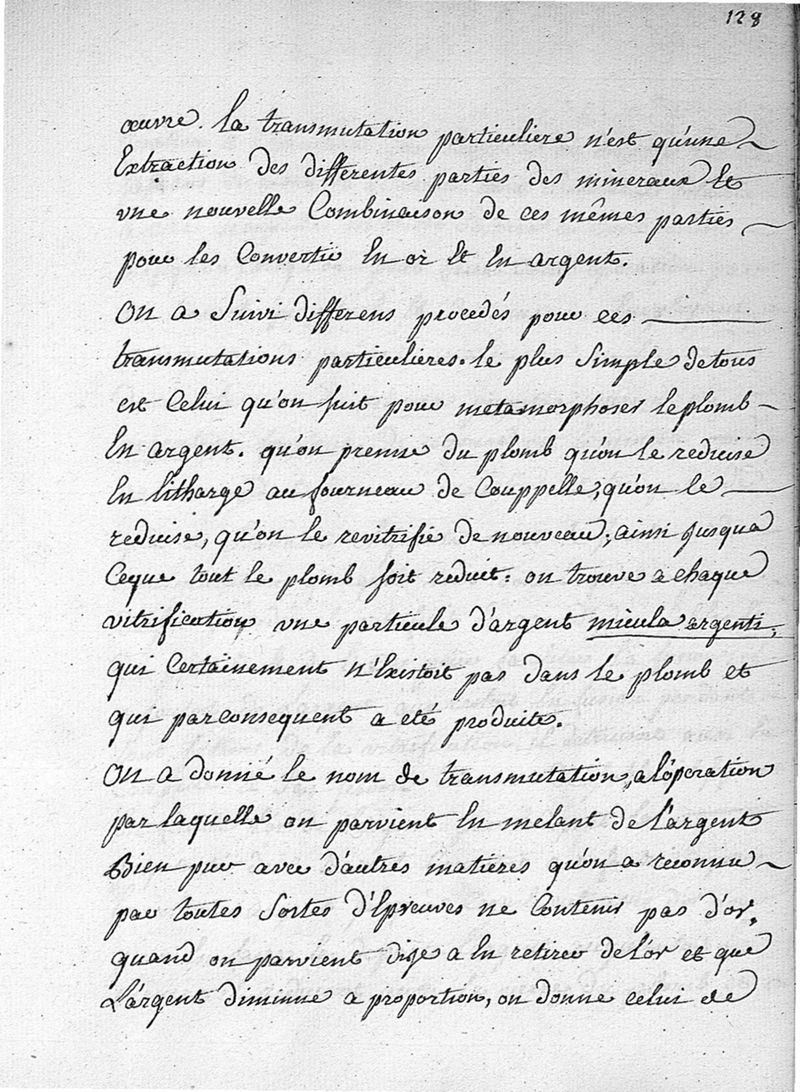 128
œuvre. la transmutation particuliere n'est qu'une
Extraction des differentes parties des mineraux Et
vne nouvelle Combinaison de ces mêmes parties
pour les Convertir En or Et En argent.
On a Suivi differens procedés pour ces
transmutations particulieres. le plus Simple de tous
est Celui qu'on suit pour metamorphoser le plomb
En argent. qu'on prenne du plomb qu'on le reduise
En litharge au fourneau de Couppelle; qu'on le
reduise, qu'on le revitrifie de nouveau; ainsi jusqua
Ceque tout le plomb soit reduit: on trouve a chaque
vitrification vne particule d'argent micula argenti,
qui Certainement n'Existoit pas dans le plomb et
qui parconsequent a eté produite.
On a donné le nom de transmutation, a l'operation
par laquelle on parvient En melant de l'argent
Bien pur avec d'autres matieres qu'on a reconnu
par toutes Sortes d'Epreuves ne Contenir pas d'or,
quand on parvient dije a En retirer de l'or et que
L'argent diminue a proportion, on donne celui de